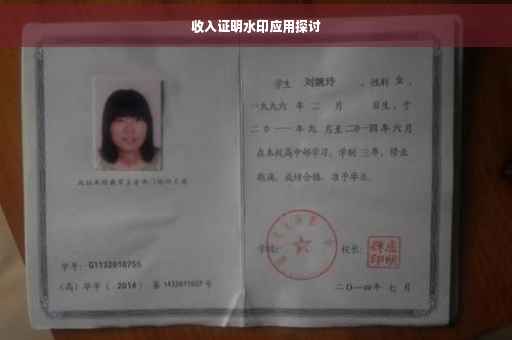 收入证明水印应用探讨
学生 刘婉玲 ，性别 女 ，
一九九六 年 二 月 日生，于
二〇一一 年 九 月至 二〇一四 年 六 月
在本校高中部学习，学制 三 年，修业
期满，成绩合格，准予毕业。
学号：G1132010755
学校：
校长：
(高) 毕字 ( 2014 ) 第 1432011037 号
二〇一四年 七 月